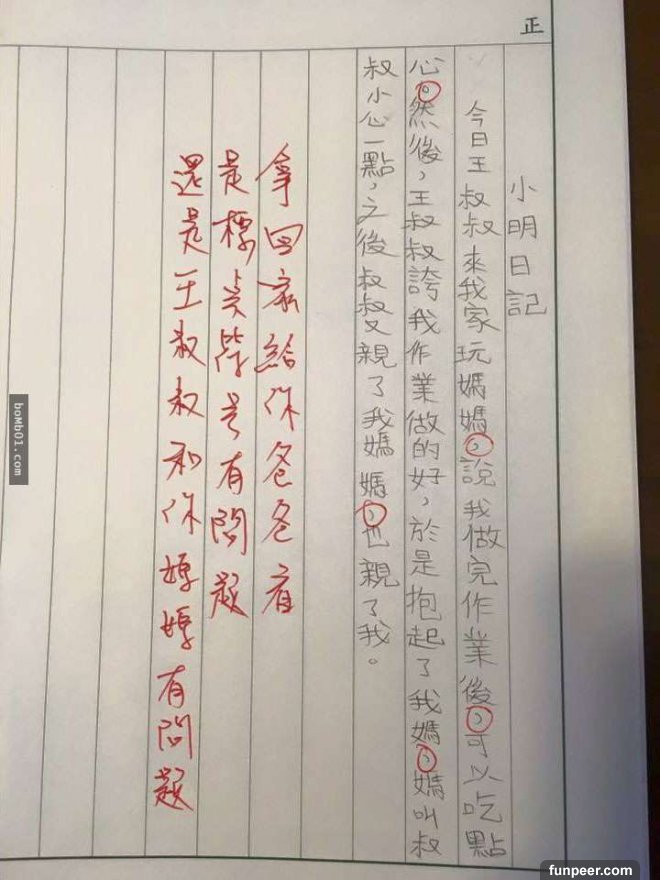 正
小明日記
今日王叔叔來我家玩媽媽，說我做完作業後，可以吃點
心。然後，王叔叔誇我作業做的好，於是抱起了我媽，媽叫叔
叔小心一點，之後叔叔又親了我媽媽，也親了我。
拿回家給你爸爸看
是標點符號有問題
還是王叔叔和你媽媽有問題
boMb01.com
funpeer.com